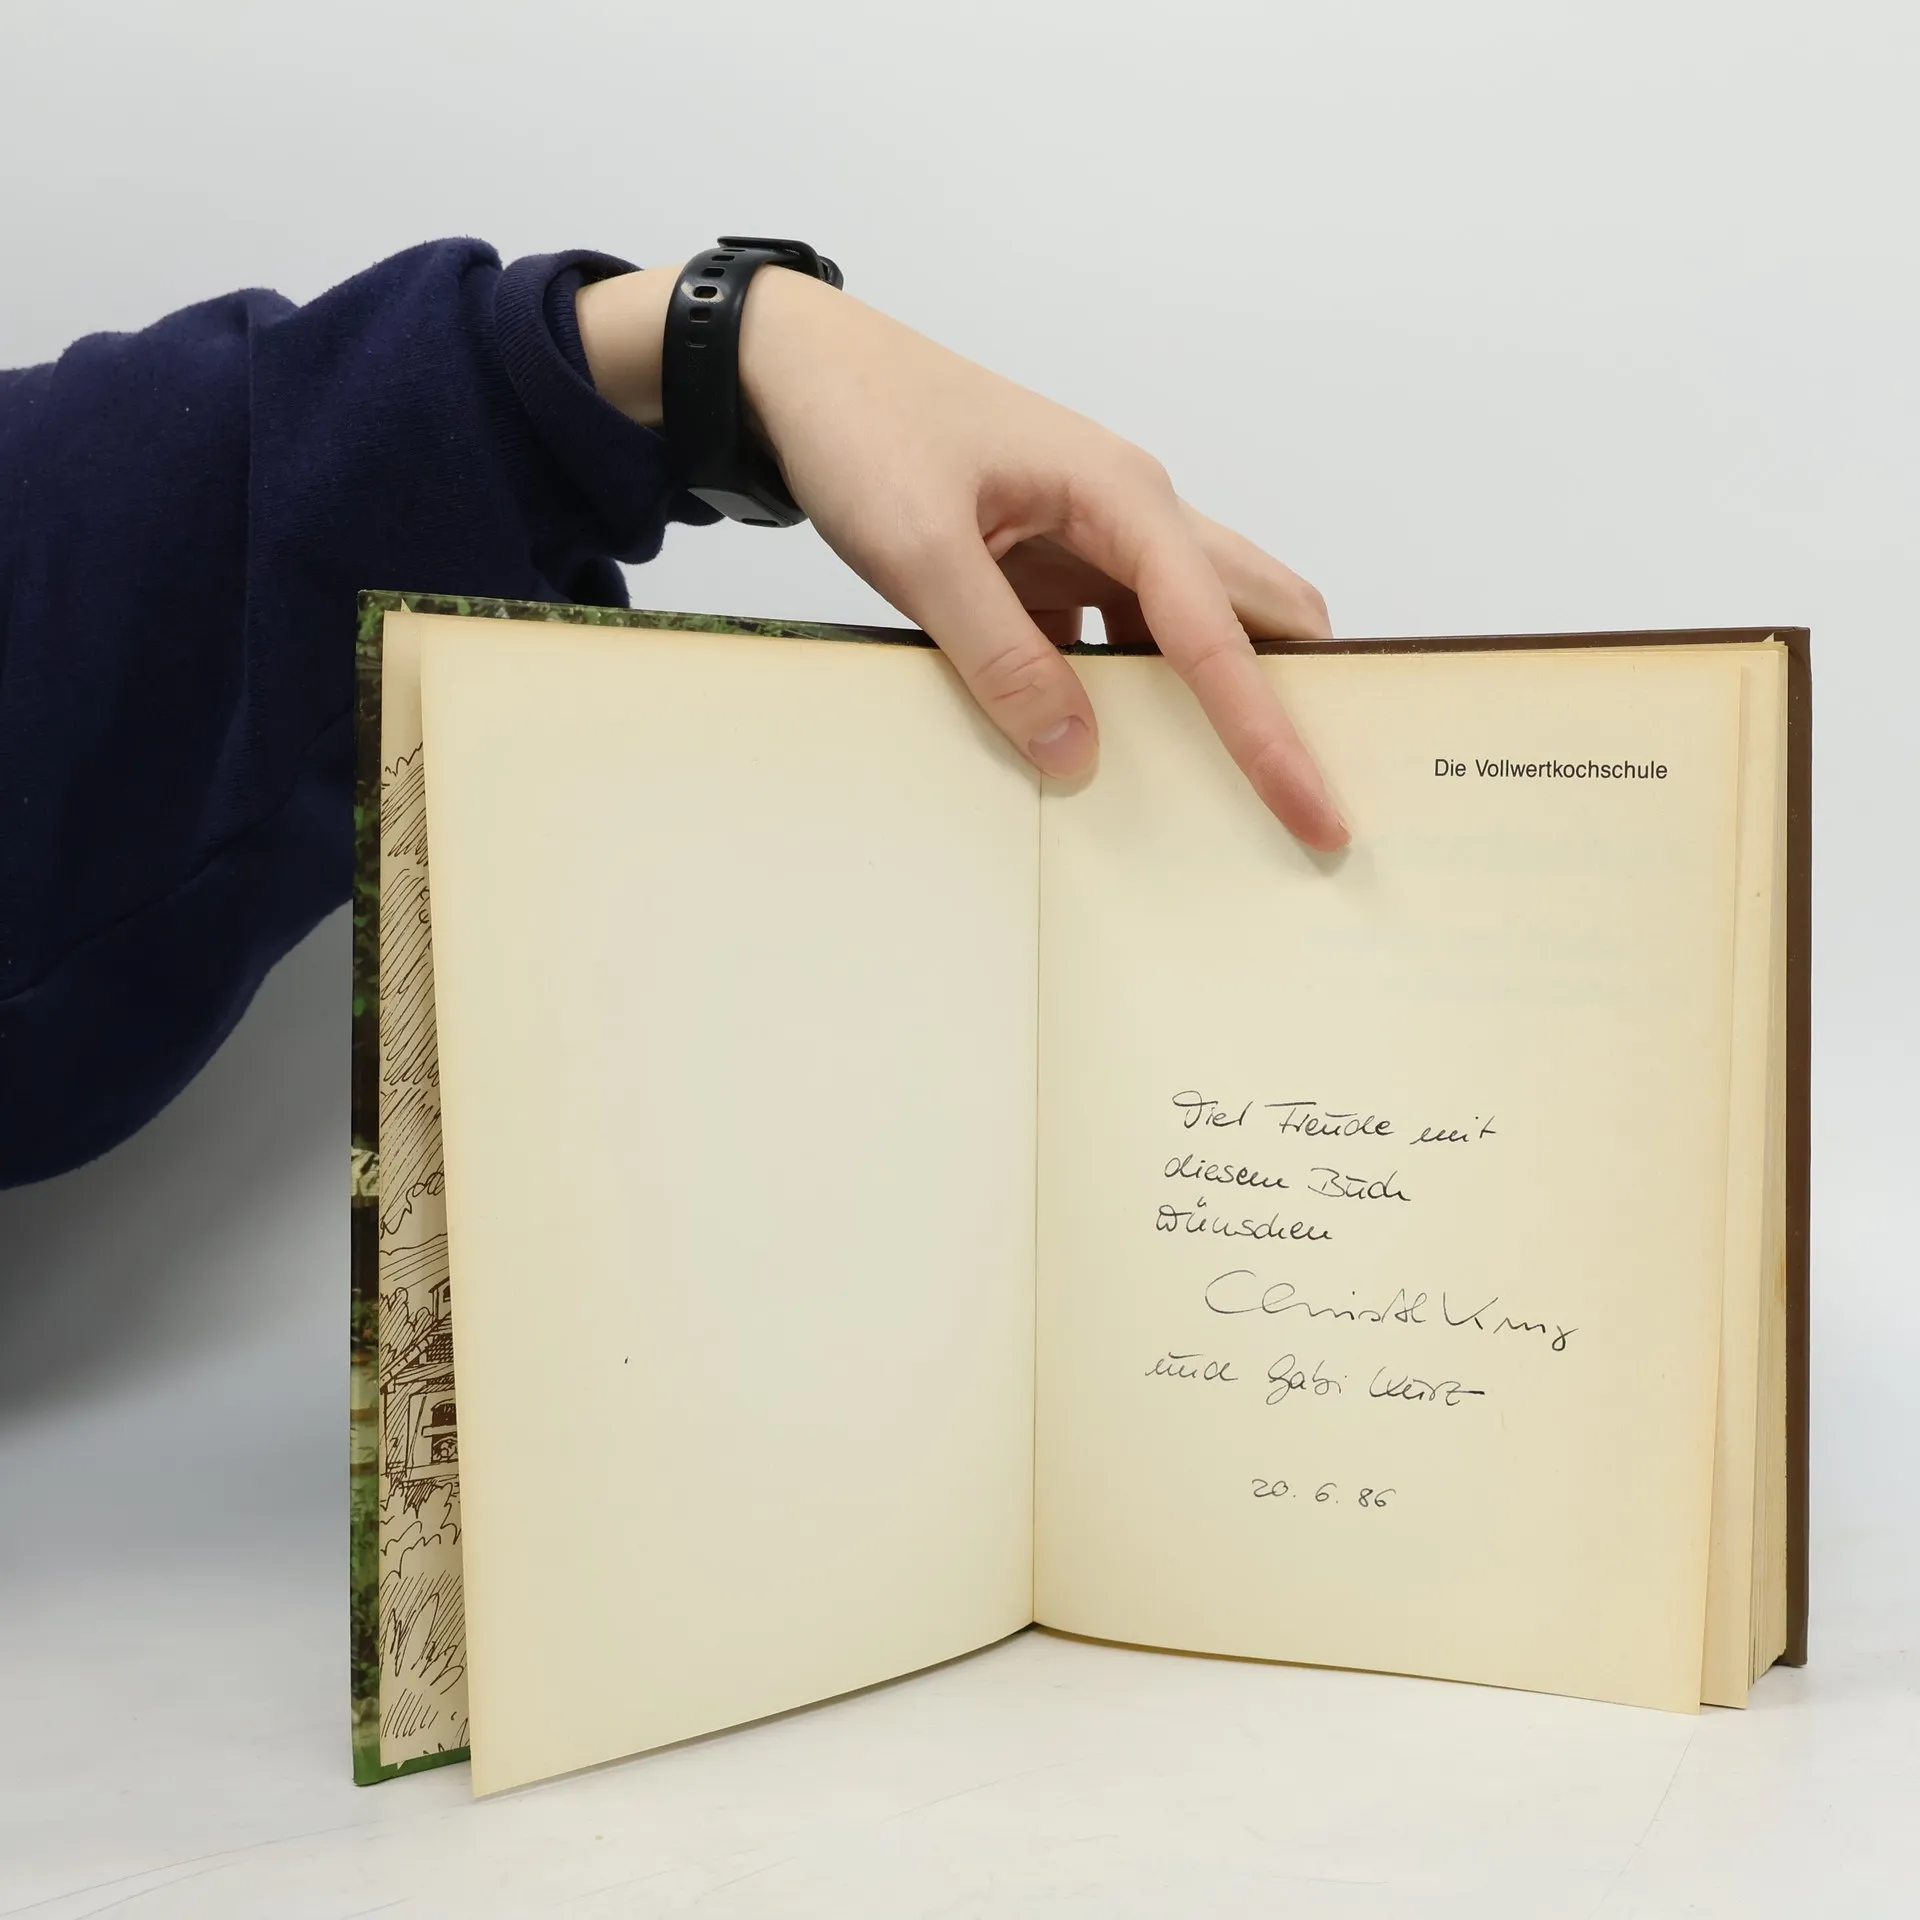 Die Vollwertkochschule
Viel Freude mit
diesem Buch
wünschen
Christl Kurz
und Gabi Kurz
20. 6. 86